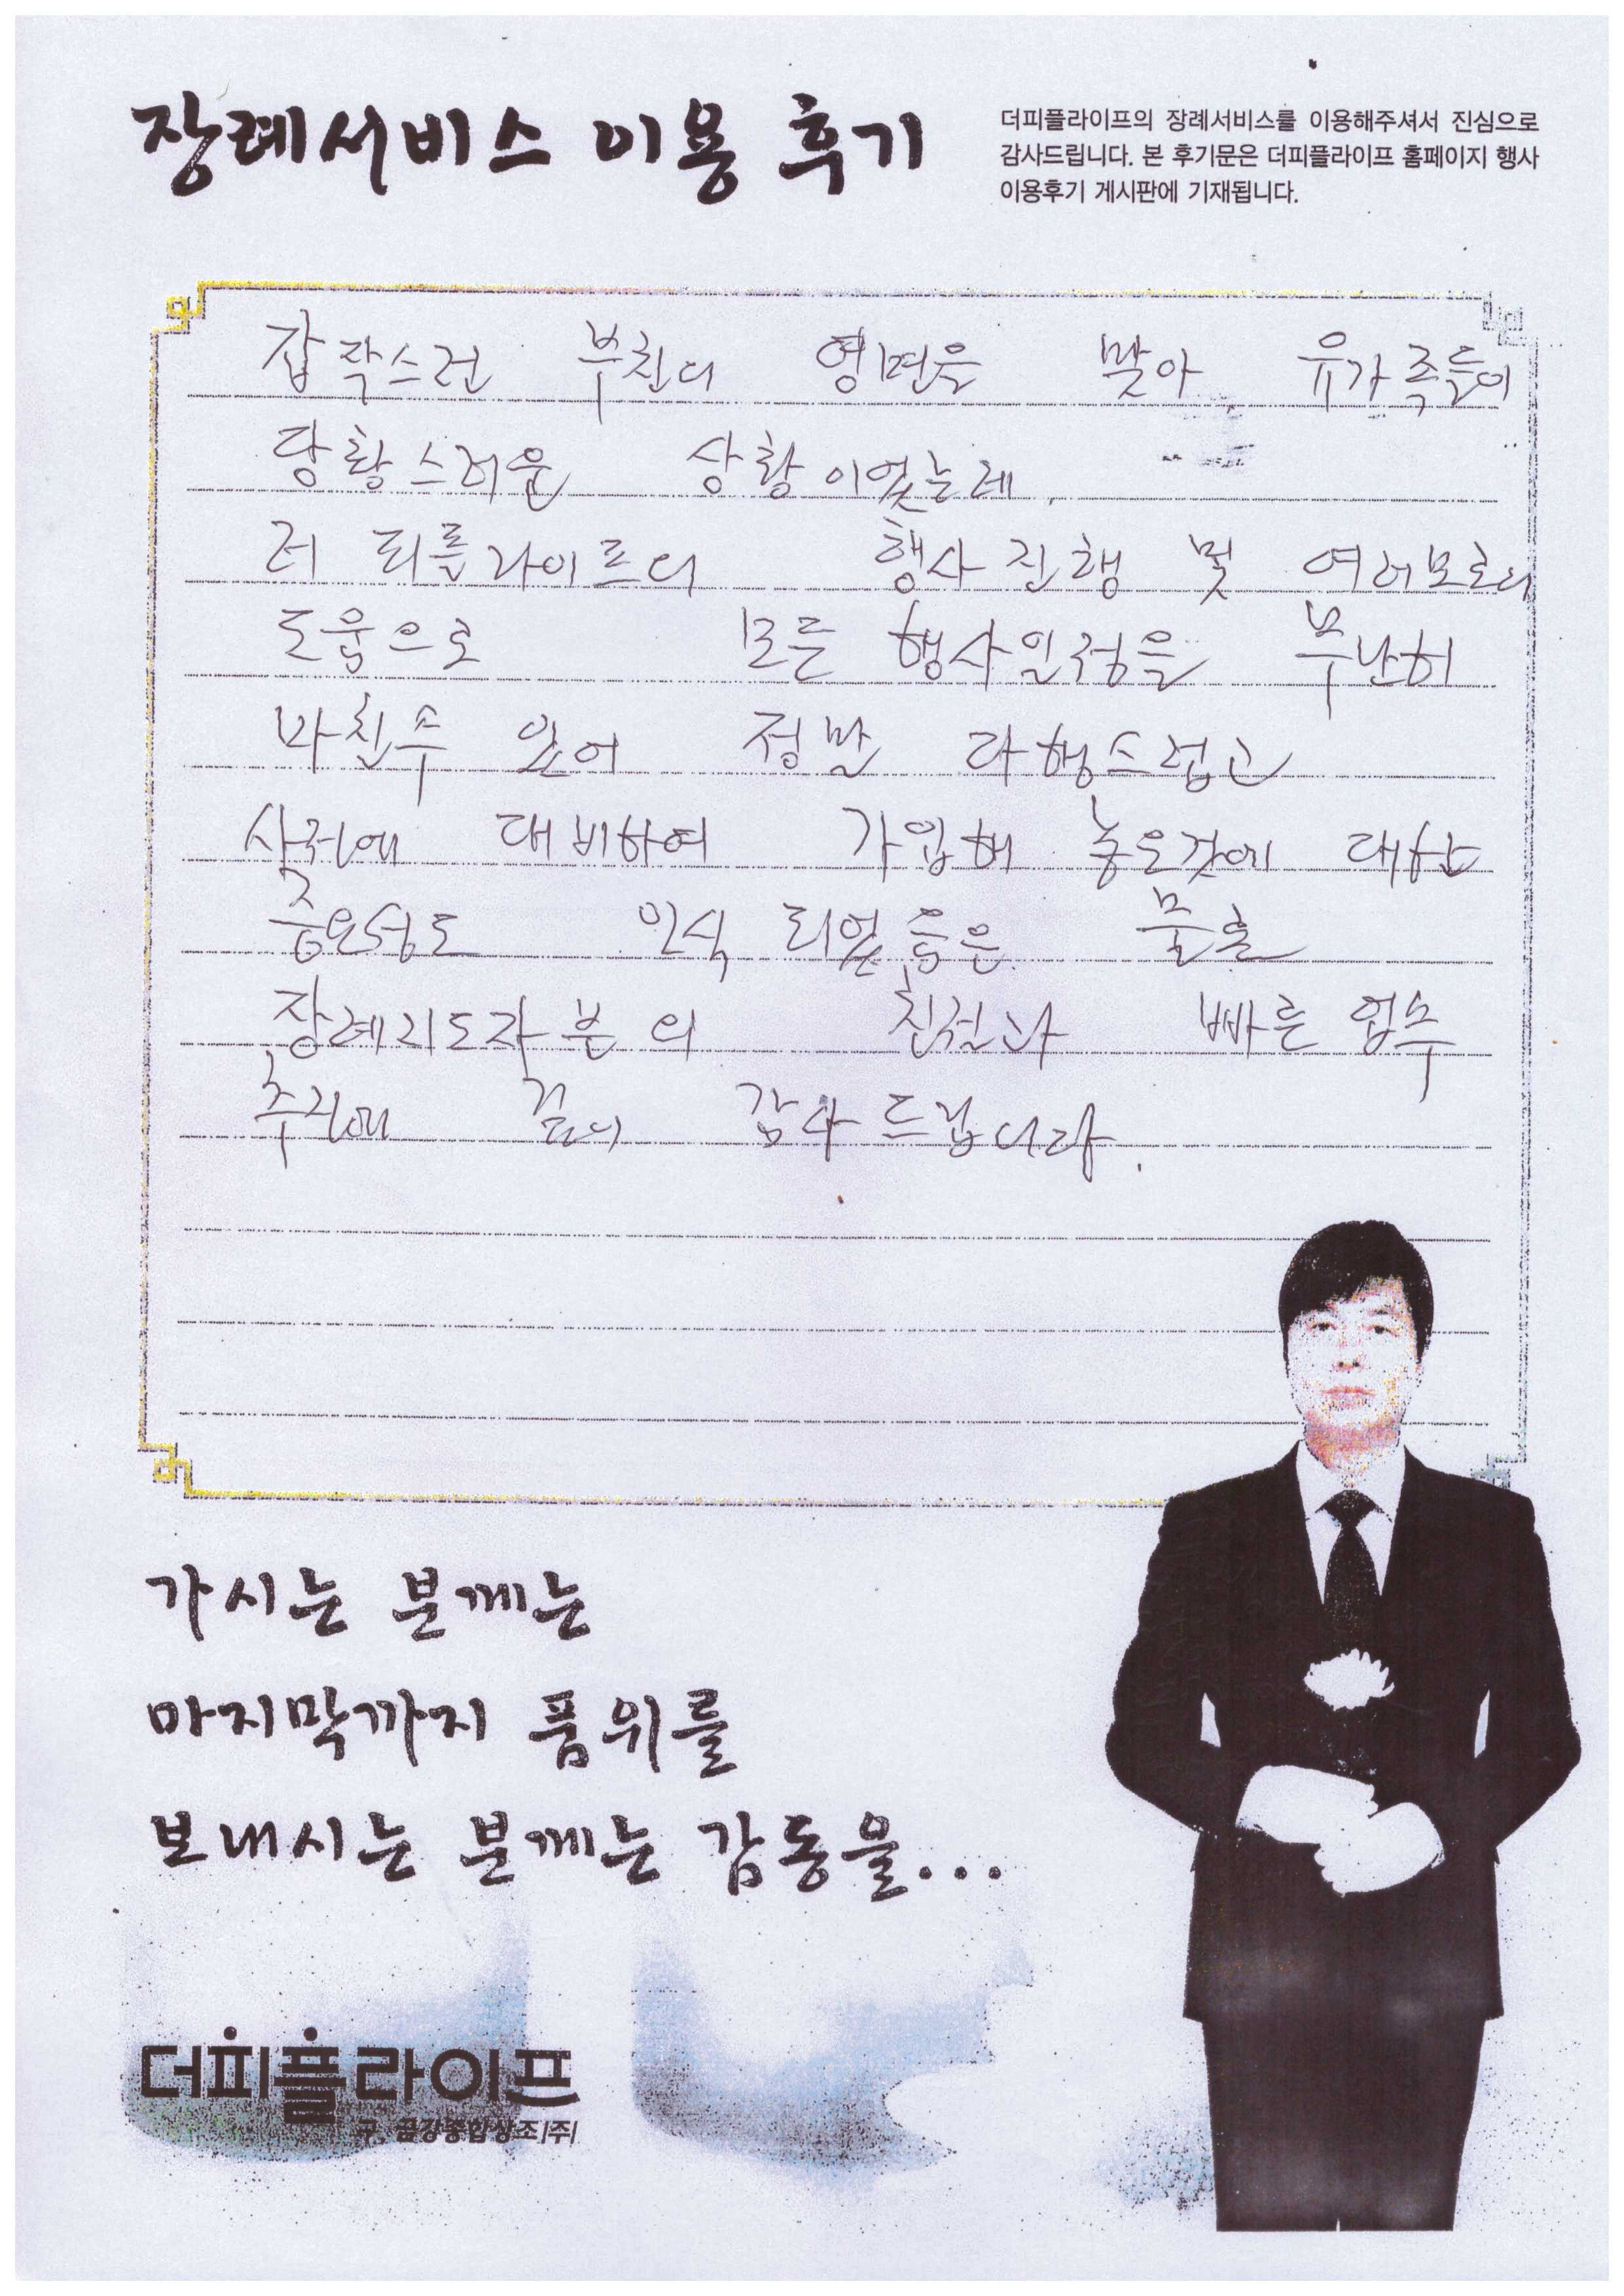 장례서비스 이용 후기
더피플라이프의 장례서비스를 이용해주셔서 진심으로
감사드립니다. 본 후기문은 더피플라이프 홈페이지 행사
이용후기 게시판에 기재됩니다.
갑작스런 부친의 영면을 맞아, 유가족들이
당황스러운 상황이었는데,
더 피플라이프의 행사진행 및 여러모로의
도움으로 모든 행사일정을 무난히
마친수 있어 정말 다행스럽고
사전에 대비하여 가입해 놓은것에 대한
중요성도 인식 되었음은 물론
장례지도자분의 친절과 빠른 업무
추진에 깊이 감사드립니다.
가시는 분께는
마지막까지 품위를
보내시는 분께는 감동을...
더피플라이프
구. 금강종합상조(주)